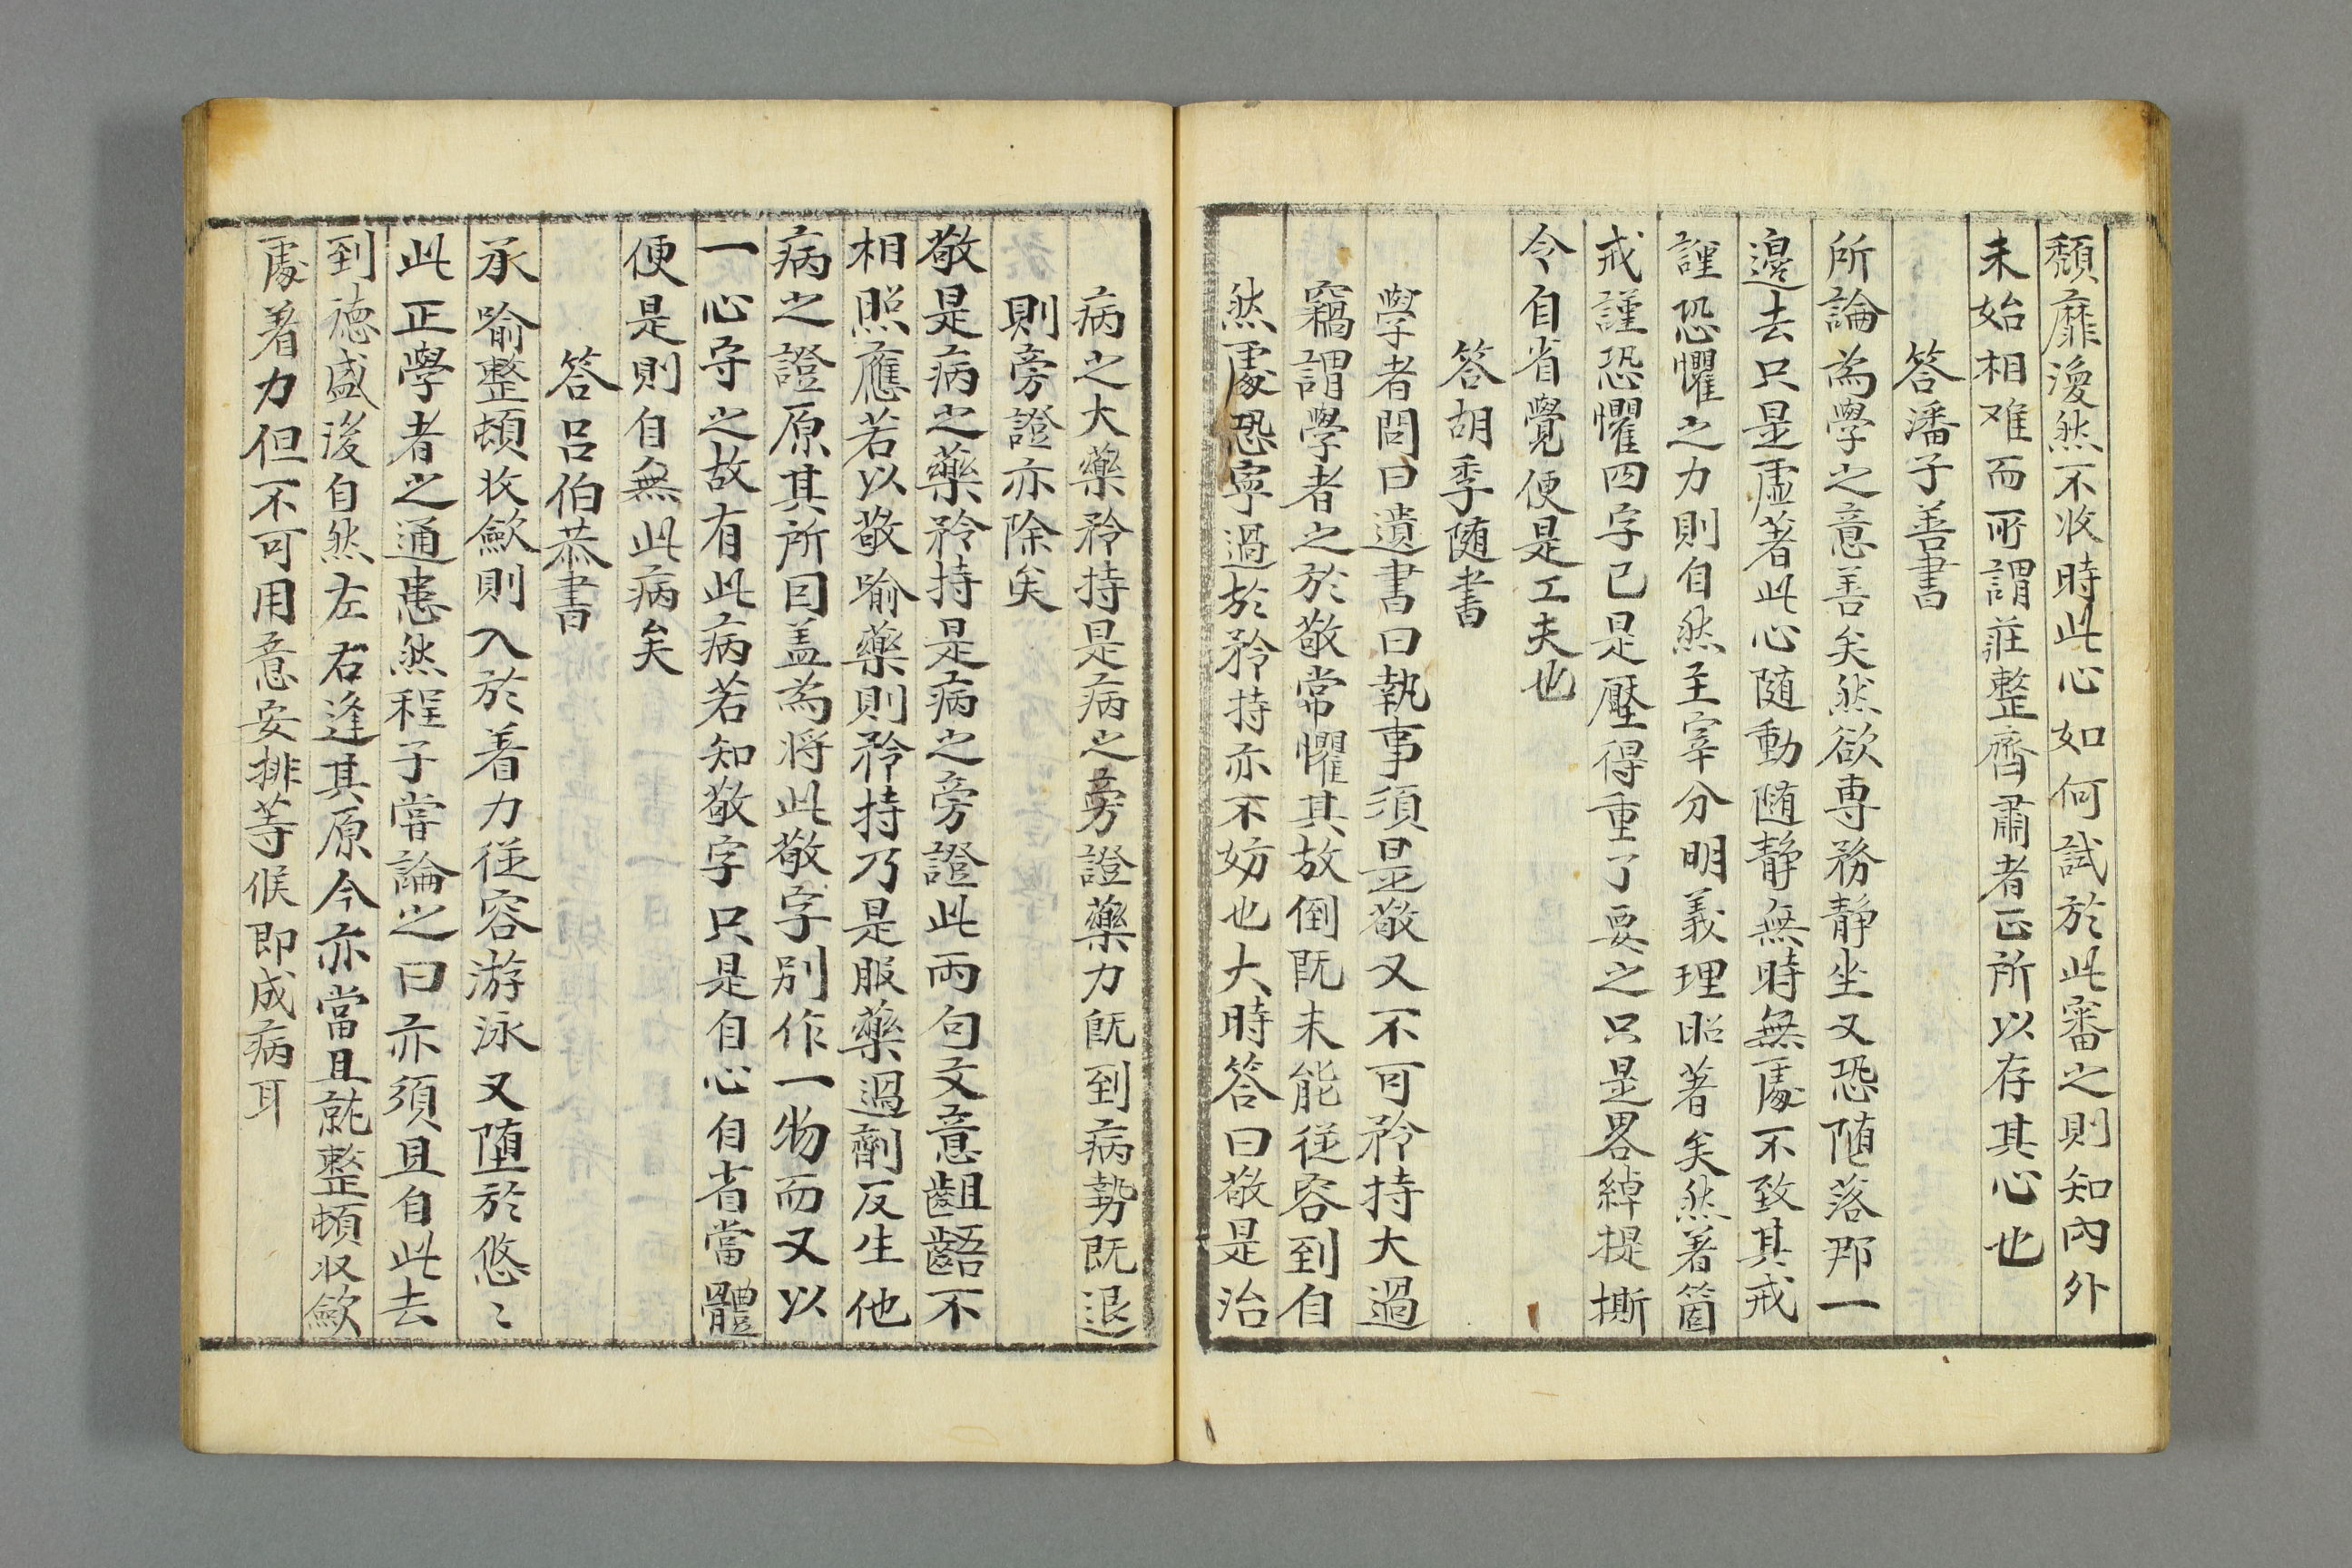 頹靡渙然不收時此心如何試於此審之則知內外
未始相難而所謂莊整齊肅者正所以存其心也
答潘子善書
所論為學之意善矣然欲専務静坐又恐随落那一
邊去只是虛著此心随動随静無時無處不致其戒
謹恐懼之力則自然主宰分明義理昭著矣然著箇
戒謹恐懼四字已是壓得重了要之只是畧綽提撕
令自省覺便是工夫也
答胡季随書
學者問曰遺書曰執事須是敬又不可矜持大過
竊謂學者之於敬常懼其放倒既未能從容到自
然處恐寧過於矜持亦不妨也大時答曰敬是治
病之大藥矜持是病之旁證藥力既到病勢既退
則旁證亦除矣
敬是病之藥矜持是病之旁證此兩句文意齟齬不
相照應若以敬喻藥則矜持乃是服藥過劑反生他
病之證原其所因盖為将此敬字别作一物而又以
一心守之故有此病若知敬字只是自心自省當體
便是則自無此病矣
答呂伯恭書
承喻整頓收歛則入於着力從容游泳又墮於悠〻
此正學者之通患然程子嘗論之曰亦須且自此去
到德盛後自然左右逢其原今亦當且就整頓収歛
處着力但不可用意安排等候即成病耳